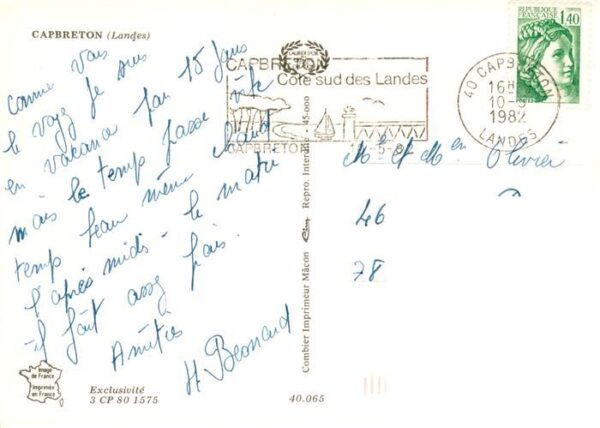 CAPBRETON (Landes)
Comme vous
le voyez je suis
en vacance pour 15 jours
mais le temps passe vite
temps beau même chaud
l'après midi - le matin
il fait assez frais.
Amitiés
H Besnard
CAPBRETON
Côte sud des Landes
CAPBRETON
RÉPUBLIQUE FRANÇAISE
1,40
40 CAPBRETON
16H
10-
1982
LANDES
Mr et Mme Olivier
46
78
Combier Imprimeur Mâcon
Repro. Interdite
45.000
Image de France
Imprimée en France
Exclusivité
3 CP 80 1575
40.065